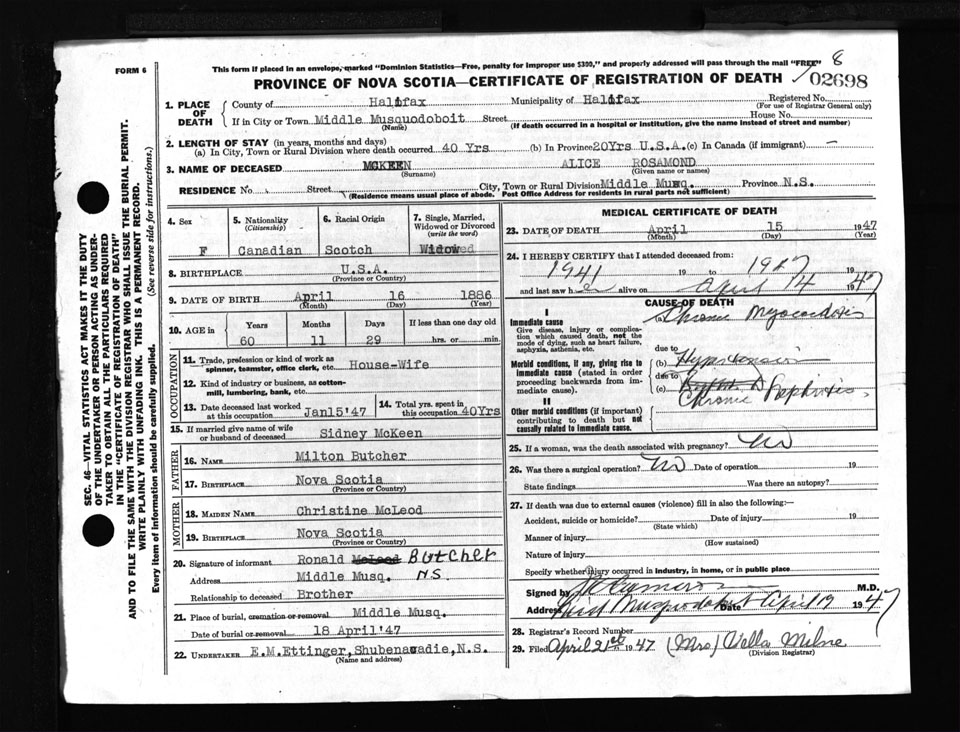 FORM 6
This form if placed in an envelope, marked "Dominion Statistics—Free, penalty for improper use $300," and properly addressed will pass through the mail "FREE"
8
PROVINCE OF NOVA SCOTIA—CERTIFICATE OF REGISTRATION OF DEATH
02698
1. PLACE OF DEATH
County of Halifax Municipality of Halifax Registered No.
(For use of Registrar General only)
If in City or Town Middle Musquodoboit Street House No.
(Name) (If death occurred in a hospital or institution, give the name instead of street and number)
2. LENGTH OF STAY (in years, months and days)
(a) In City, Town or Rural Division where death occurred 40 Yrs (b) In Province 20Yrs U.S.A. (c) In Canada (if immigrant) —
3. NAME OF DECEASED MCKEEN ALICE ROSAMOND
(Surname) (Given name or names)
RESIDENCE No Street City, Town or Rural Division Middle Musq. Province N.S.
(Residence means usual place of abode. Post Office Address for Residents in rural parts not sufficient)
4. Sex F
5. Nationality (Citizenship) Canadian
6. Racial Origin Scotch
7. Single, Married, Widowed or Divorced (write the word) Widowed
8. BIRTHPLACE U.S.A.
(Province or Country)
9. DATE OF BIRTH April 16 1886
(Month) (Day) (Year)
10. AGE in Years Months Days If less than one day old
60 11 29 hrs. or min.
OCCUPATION
11. Trade, profession or kind of work as spinner, teamster, office clerk, etc. House-Wife
12. Kind of industry or business, as cotton-mill, lumbering, bank, etc.
13. Date deceased last worked at this occupation Jan15'47
14. Total yrs. spent in this occupation 40Yrs
15. If married give name of wife or husband of deceased Sidney McKeen
FATHER
16. NAME Milton Butcher
17. BIRTHPLACE Nova Scotia
(Province or Country)
MOTHER
18. MAIDEN NAME Christine McLeod
19. BIRTHPLACE Nova Scotia
(Province or Country)
20. Signature of informant Ronald McLeod Butcher
Address Middle Musq. N.S.
Relationship to deceased Brother
21. Place of burial, cremation or removal Middle Musq.
Date of burial or removal 18 April'47
22. UNDERTAKER E.M.Ettinger, Shubenacadie, N.S.
(Name and address)
MEDICAL CERTIFICATE OF DEATH
23. DATE OF DEATH April 15 1947
(Month) (Day) (Year)
24. I HEREBY CERTIFY that I attended deceased from:
1941 19 to 1947 19
and last saw h alive on April 14 1947
CAUSE OF DEATH
I
Immediate cause
Give disease, injury or complication which caused death, not the mode of dying, such as heart failure, asphyxia, asthenia, etc.
(a) Chronic Myocarditis
due to
Morbid conditions, if any, giving rise to immediate cause (stated in order proceeding backwards from immediate cause).
(b) Hypertension
due to
(c) Chronic Nephritis
II
Other morbid conditions (if important) contributing to death but not causally related to immediate cause.
25. If a woman, was the death associated with pregnancy? No
26. Was there a surgical operation? No Date of operation 19
State findings Was there an autopsy?
27. If death was due to external causes (violence) fill in also the following:—
Accident, suicide or homicide? Date of injury 19
(State which)
Manner of injury
(How sustained)
Nature of injury
Specify whether injury occurred in industry, in home, or in public place
Signed by M.D.
Address Midd Musquodoboit Date April 19 1947
28. Registrar's Record Number
29. Filed April 21st 1947 (Mrs) Della Milne
(Division Registrar)
SEC. 46—VITAL STATISTICS ACT MAKES IT THE DUTY
OF THE UNDERTAKER OR PERSON ACTING AS UNDER-
TAKER TO OBTAIN ALL THE PARTICULARS REQUIRED
IN THE "CERTIFICATE OF REGISTRATION OF DEATH"
AND TO FILE THE SAME WITH THE DIVISION REGISTRAR WHO SHALL ISSUE THE BURIAL PERMIT.
WRITE PLAINLY WITH UNFADING INK. THIS IS A PERMANENT RECORD.
Every item of Information should be carefully supplied. (See reverse side for instructions.)